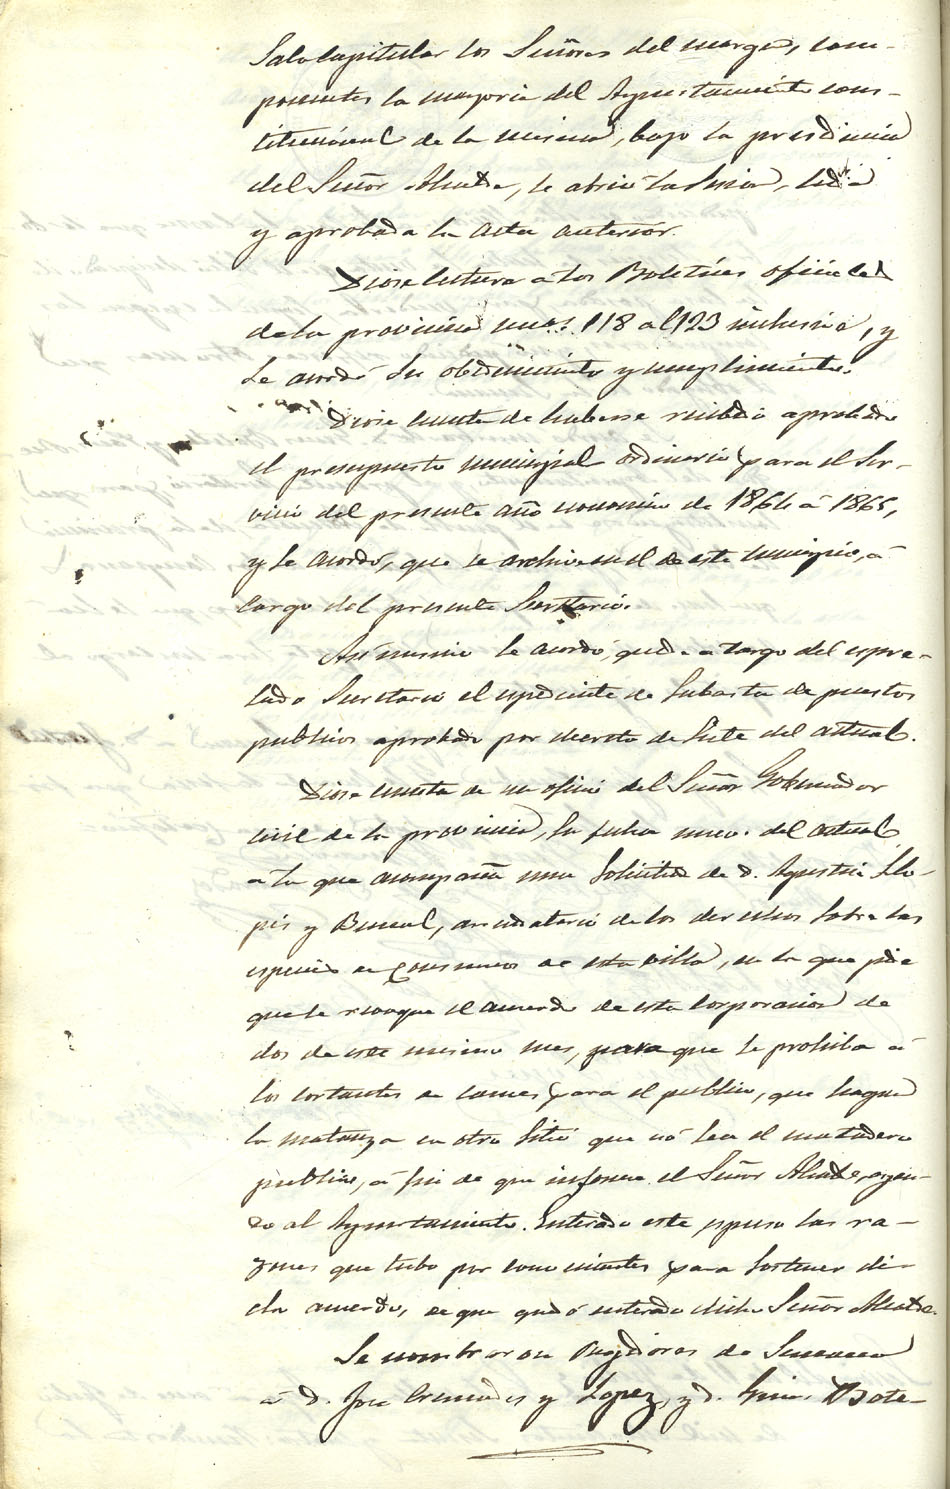 Sala capitular los Señores del margen, com-
ponentes la mayoria del Ayuntamiento cons-
titucional de la misma, bajo la presidencia
del Señor Alcalde, se abrió la sesion, leida
y aprobada la acta anterior.
Diose lectura a los Boletines oficiales
de la provincia nums. 118 al 123 inclusive, y
se acordó su obedecimiento y cumplimiento.
Diose cuenta de haberse recibido aprobado
el presupuesto municipal ordinario para el ser-
vicio del presente año economico de 1864 á 1865,
y se acordó, que se archive en el de este municipio, á
cargo del presente Secretario.
Asi mismo se acordó, quede a cargo del espre-
sado Secretario el espediente de subasta de puestos
publicos aprobado por decreto de siete del actual.
Diose cuenta de un oficio del Señor Gobernador
civil de la provincia, su fecha nueve del actual,
a la que acompaña una solicitud de D. Agustin Llo-
pis y , arrendatario de los derechos sobre las
especies de consumos de esta villa, en la que pide
que se revoque el acuerdo de esta corporacion de
dos de este mismo mes, para que se prohiba á
los cortantes de carnes para el publico, que hagan
la matanza en otro sitio que nó sea el matadero
publico, á fin de que informe el Señor Alcalde, oyen-
do al Ayuntamiento. Enterado este, espuso las ra-
zones que tubo por convenientes para sostener di-
cho acuerdo, de que quedó enterado dicho Señor Alcalde.
Se nombraron Regidores de Semana
á D. Jose Cremades y Lopez, y D. Bote-